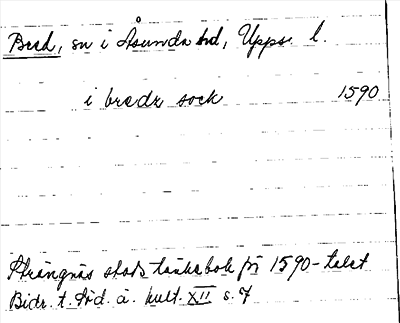 Bred, sn i Åsunda hd, Upps. l.
i bredz sock 1590
Strängnäs stads tänkebok fr 1590-talet
Bidr. t. Söd. ä. kult. XII s. 7